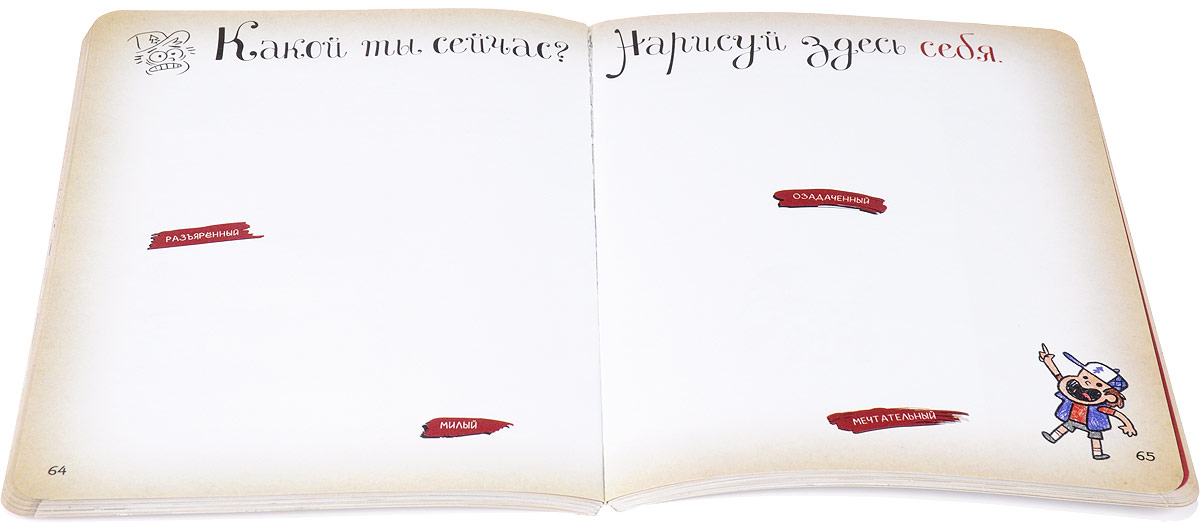 Какой ты сейчас?
Нарисуй здесь себя.
РАЗЪЯРЕННЫЙ
МИЛЫЙ
ОЗАДАЧЕННЫЙ
МЕЧТАТЕЛЬНЫЙ
64
65